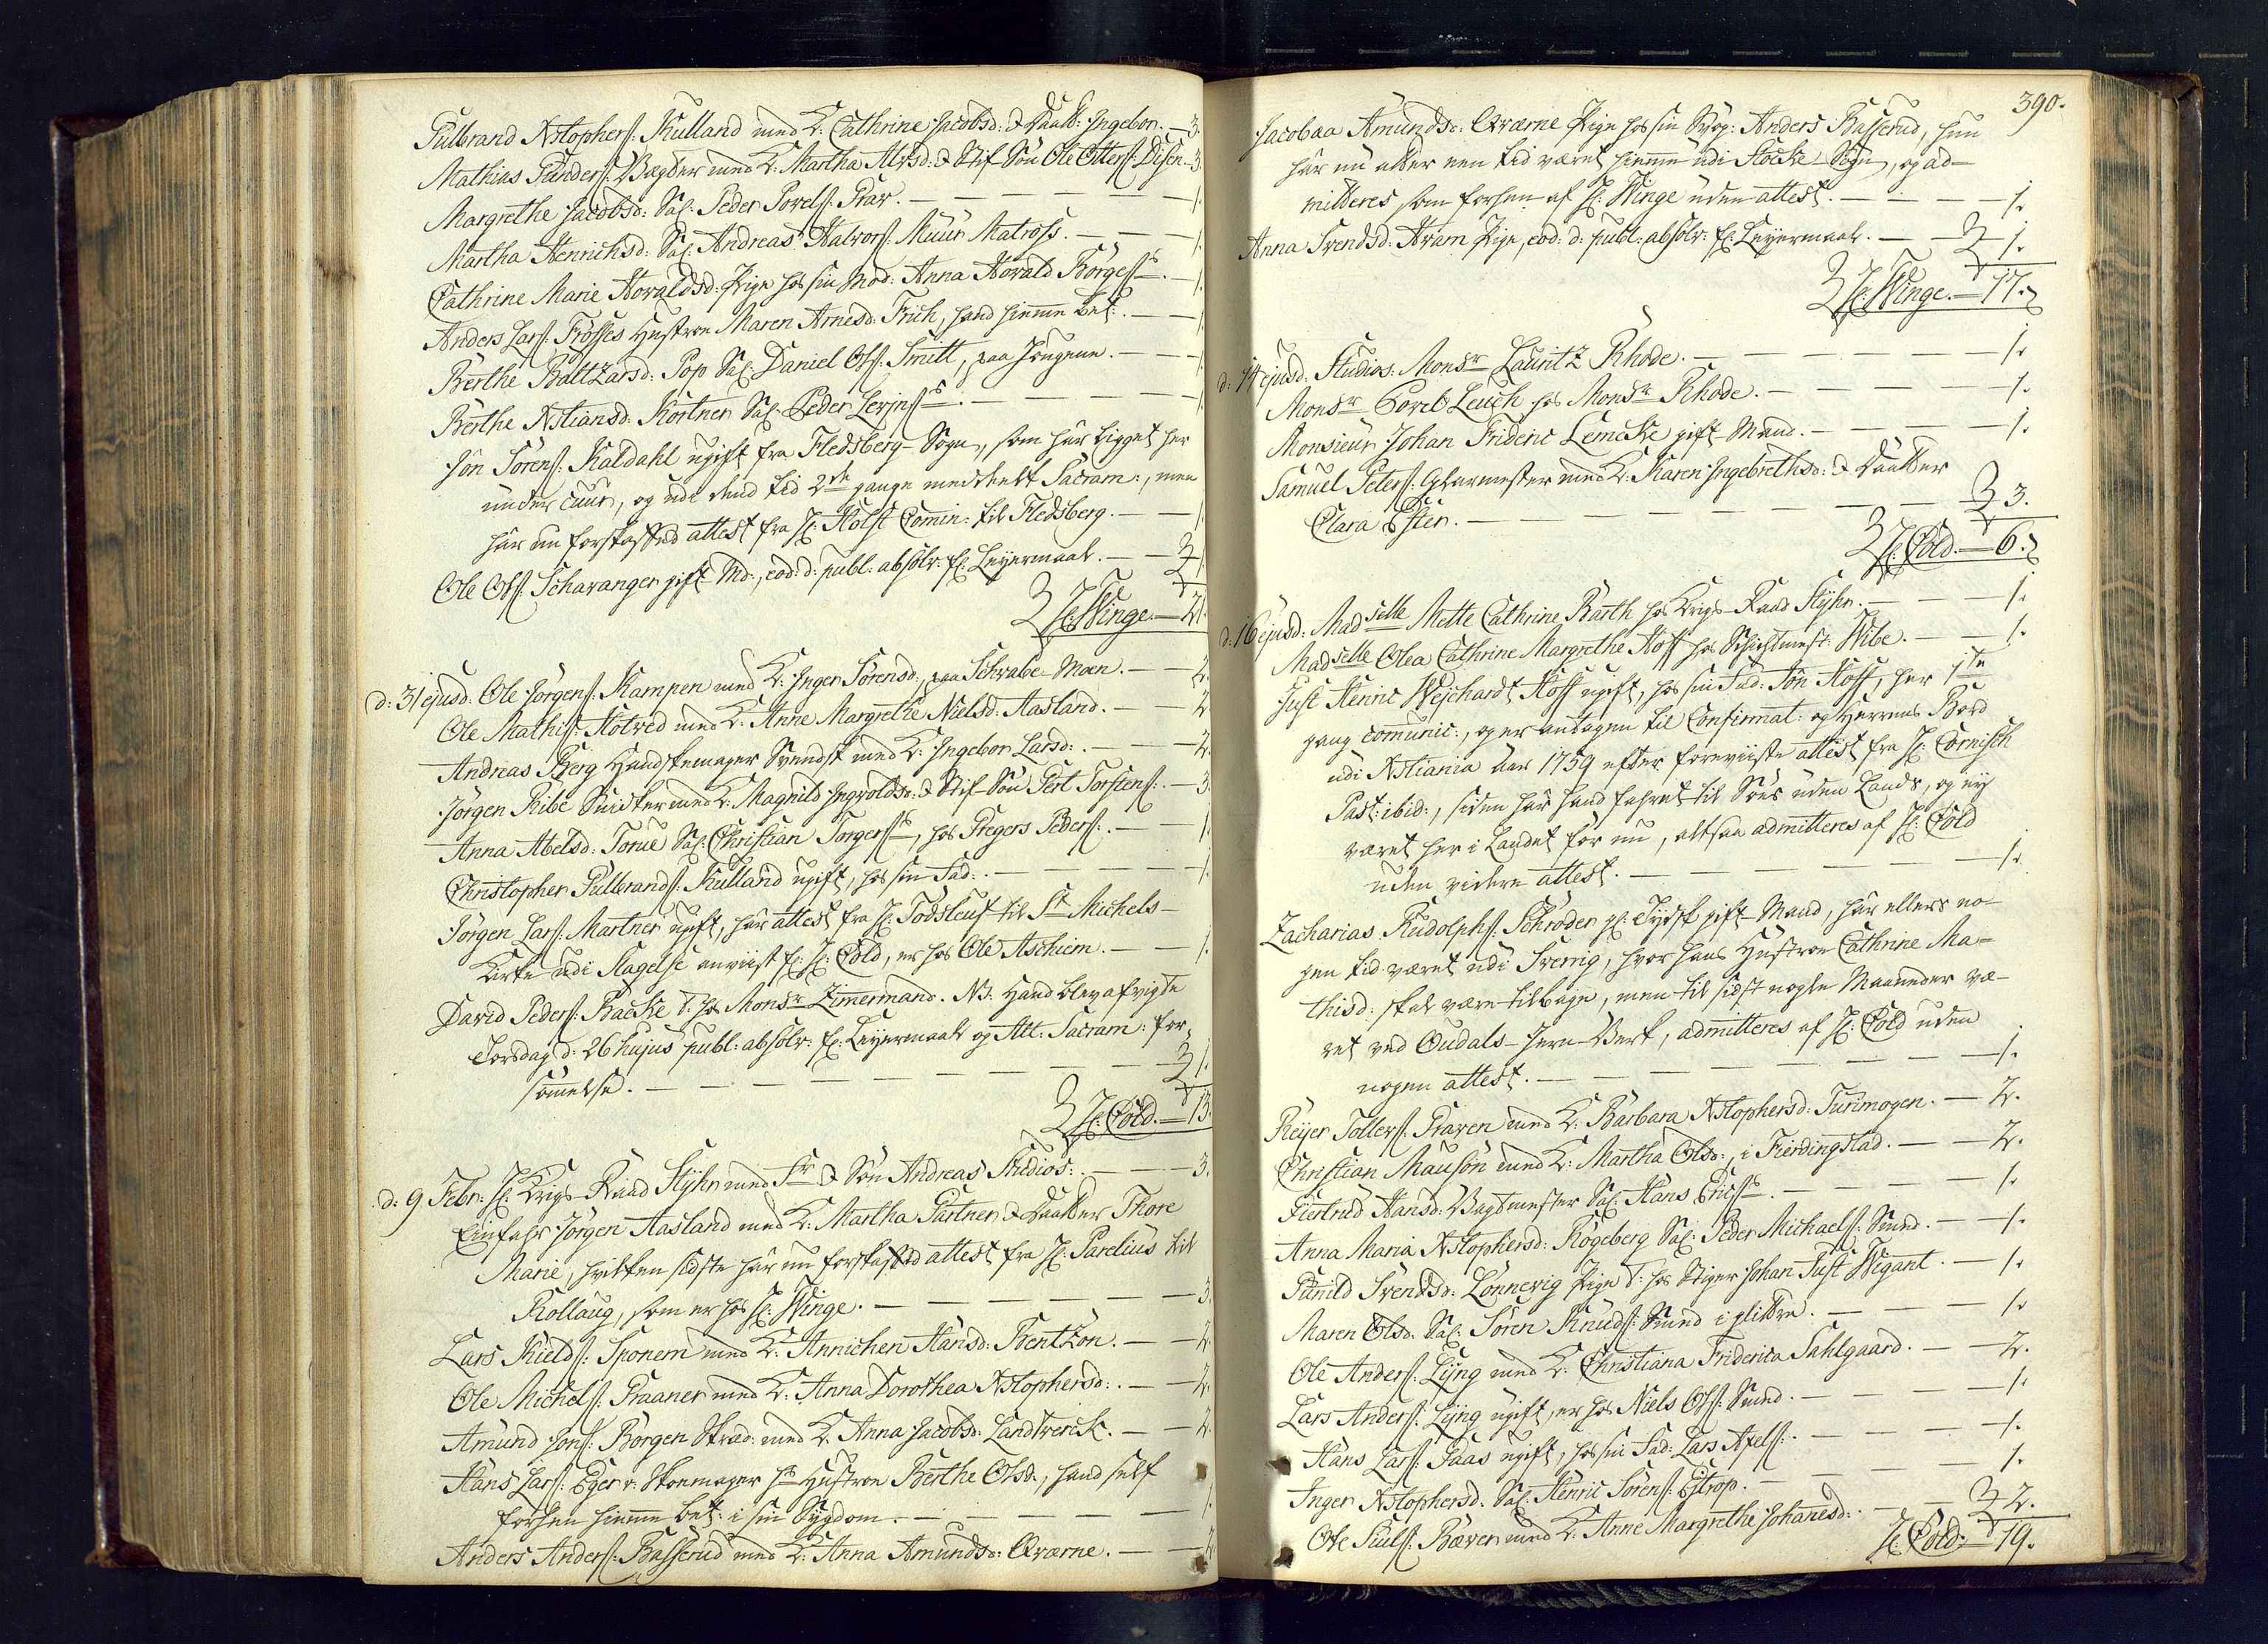 Gulbrand Xstophers: Kulland med K: Cathrine Jacobsd: & Daatt: Ingebor. — 3.
Mathias Gunders: Vægter med K: Martha Alvsd: & Stif Søn Ole Otters: Disen — 3
Margrethe Jacobsd: Sal: Peder Povels: Prav. — 1.
Martha Henrichsd: Sal: Andreas Halvors: Muur Matross. — 1.
Cathrine Marie Hovaldsd: Pige hos sin Mod: Anna Hovald Børgess. — 1.
Anders Lars: Frosses Hustroe Maren Arnesd: Frich, hand hiemme bet: — 1.
Berthe Baltzarsd: Pop Sal: Daniel Ols: Smitt, paa Jougene. — 1.
Berthe Xstiansd: Kortner Sal: Peder Levins — 1.
Jon Sørens: Kaldahl ugift fra Fledsberg Sogn, som har ligget her
under cuur, og udi dend tid 2de gange meddeelt Sacram:, men
har nu forskaffed attest fra H: Holst Comin: til Fledsberg. — 1.
Ole Ols: Schavanger gift Md:, eod: d: publ: absolv: f: Leyermaal. — 1.
H: Winge. — 21.
d: 31 ejusd: Ole Jørgens: Kampen med K: Inger Sørensd:, paa Schrabe-Moen. — 2.
Ole Mathis: Kotved med K: Anne Margrethe Nielsd: Aasland. — 2
Andreas Berg Handskemager Svendsk med K: Ingebor Larsd: — 2.
Jørgen Ribe Snidker med K: Magnild Ingvoldsd: & Stif Søn Gert Torstens: — 3.
Anna Abelsd: Torue Sal: Christian Torgers, hos Gregers Peders: — 1.
Christopher Gulbrands: Kulland ugift, hos sin Fad: — 1.
Jørgen Lars: Martner ugift, har attest fra H: Godsleuf til St Michels-
Kirke udi Slagelse anviist f: H: Cold, er hos Ole Aschiem. — 1.
David Peders: Backe T: hos Monsr Zimermand. NB. Hand blev afvigte
Torsdag d: 26 hujus publ: absolv: f: Leyermaal og Alt: Sacram: for-
sømelse. — 1.
H: Cold. — 13.
d: 9 Febr: H: Krigs-Raad Styhr med Fr & Søn Andreas Studios: — 3.
Einfahr Jørgen Aasland med K: Martha Gurtner & Daatter Thore
Marie, hvilken sidste har nu forskaffed attest fra H: Parelius til
Rollaug, som er hos H: Winge. — 3.
Lars Kields: Sponem med K: Annichen Hansd: Bentzon. — 2.
Ole Michels: Graaner med K: Anna Dorothea Xstophersd: — 2.
Amund Jons: Børgen Skræd: med K: Anna Jacobsd: Landtverck. — 2.
Hans Lars: Eger Skomager hs Hustroe Berthe Olsd:, hand self
forhen hiemme bet: i sin Sygdom. — 1.
Anders Anders: Basserud med K: Anna Amundsd: Qværne. — 2.
390.
Jacobaa Amundsd: Qværne Pige hos sin Svog: Anders Basserud, hun
har nu atter een tid været hiemme udi Stocke Sogn, og ad-
mitteres som forhen af H: Winge uden attest. — 1.
Anna Svendsd: Aram Pige, eod: d: publ: absolv: f: Leyermaal. — 1.
H: Winge. — 17.
d: 14 ejusd: Studios: Monsr Lauritz Rhode. — 1.
Monsr Povel Leuch hos Monsr Rhode. — 1.
Monsieur Johan Frideric Lemcke gift Mand. — 1.
Samuel Peters: Glarmester med K: Karen Ingebrethsd: & Daatter
Clara Ester. — 3.
H: Cold. — 6.
d: 16 ejusd: Madselle Mette Cathrine Barth hos Krigs-Raad Styhr. — 1.
Madselle Olea Cathrine Margrethe Hoff hos Schichtmest: Wibe. — 1.
Just Henric Weichardt Hoff ugift, hos sin Fad: Jon Hoff, her 1te
gang comunic:, og er antagen til Confirmat: og Herrens Bord
udi Xstiania aar 1759 efter foreviiste attest fra H: Cornisch
Past: ibid:, siden har hand fahret til Søes uden Lands, og ey
været her i Landet før nu, altsaa admitteres af H: Cold
uden videre attest. — 1.
Zacharias Rudolphs: Schrøder p: Tydsk gift Mand, har ellers no-
gen tid været udi Sverrig, hvor hans Hustroe Cathrine Ma-
thisd: skal være tilbage, men til sidst nogle Maaneder væ-
ret ved Oudals-Jern-Verk, admitteres af H: Cold uden
nogen attest. — 1.
Reyer Tollers: Graven med K: Barbara Xstophersd: Turimogen. — 2.
Christian Mauson med K: Martha Olsd:, i Fierdingstad. — 2.
Giertrud Hansd: Vagtmester Sal: Hans Erics — 1.
Anna Maria Xstophersd: Rogeberg Sal: Peder Michaels: Smed. — 1.
Gunild Svendsd: Lonnevig Pige T: hos Stiger Johan Just Wigant. — 1.
Maren Olsd: Sal: Søren Knuds: Smed i glittre. — 1.
Ole Anders: Lyng med K: Christiana Friderica Sahlgaard. — 2.
Lars Anders: Lyng ugift, er hos Niels Ols: Smed. — 1.
Hans Lars: Gaas ugift, hos sin Fad: Lars Axels: — 1.
Inger Xstophersd: Sal: Henric Sørens: Estrop. — 1.
Ole Siuls: Bæver med K: Anne Margrethe Johanesd: — 2.
H: Cold: — 19.